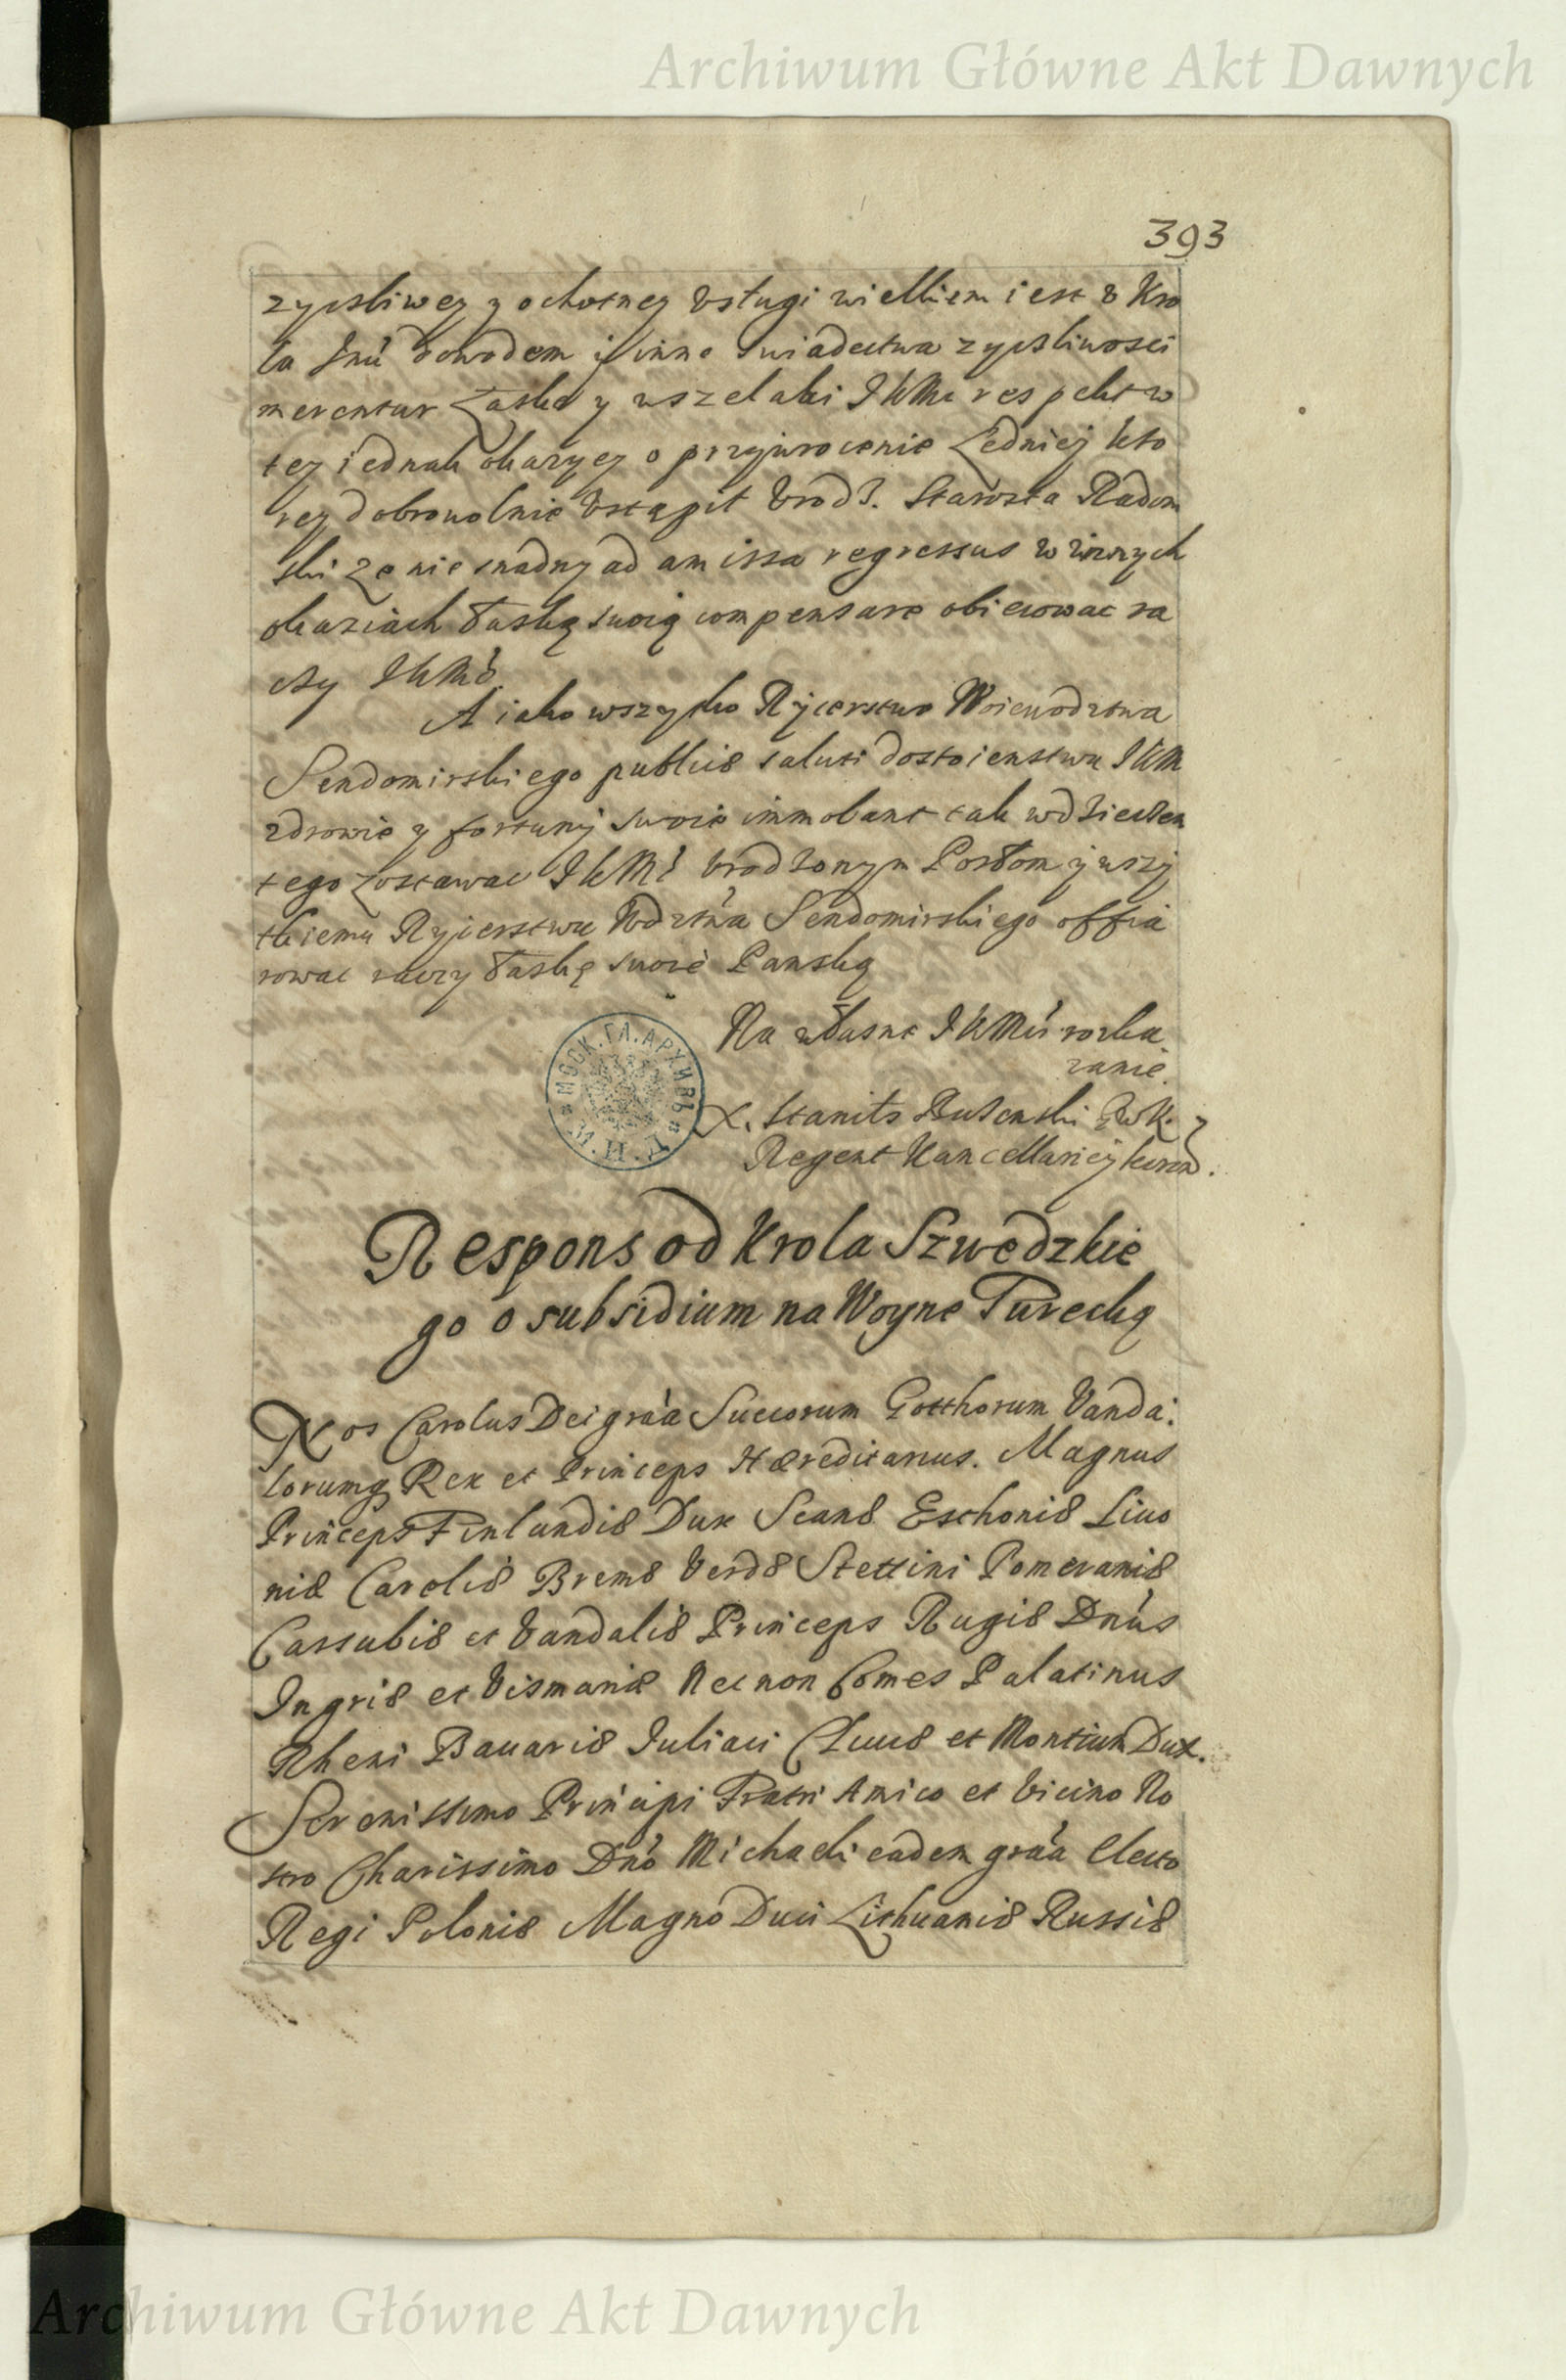 Archiwum Główne Akt Dawnych
393
zyczliwey y ochotney Usługi wielkiem iest u Kro
la Jmći dowodem y inne swiadectwa zyczliwosci
merentur Łaskę y wszelaki JKMci respekt w
tey iednak okazyey o przywrocenie Ledniey kto
rey dobrowolnie Ustąpił Urodz. Starosta Radom
ski ze nie snadny ad amissa regressus w innych
okaziach łaską swoią compensare obiecowac ra
czy JKMć.
A iako wszystko Rycerstwo Woiewodztwa
Sendomirskiego publicæ saluti dostoienstwu JKM
zdrowie y fortuny swoie immolant tak wdzieczen
tego zostawac JKMć Urodzonym Posłom y wszy
tkiemu Rycerstwu Wdztwa Sendomirskiego offia
rowac raczy łaskę swoię Panską
Na własne JKMći rozka
zanie.
X. Stanits Buzenski RWK.
Regent Kancellariey koron.
МОСК. ГЛ. АРХИВЪ М. И. Д.
Respons od Krola Szwedzkie
go o subsidium na Woyne Turecką
Nos Carolus Dei gra'a Suecorum Gotthorum Vanda:
lorumq Rex et Princeps Hæreditarius. Magnus
Princeps Finlandiæ Dux Scanæ Esthoniæ Livo
niæ Careliæ Bremæ Verdæ Stettini Pomeraniæ
Cassubiæ et Vandaliæ Princeps Rugiæ Dn'us
Ingriæ et Vismariæ Nec non Comes Palatinus
Rheni Bavariæ Juliaci Cliviæ et Montium Dux.
Serenissimo Principi Fratri Amico et Vicino No
stro Charissimo Dn'o Michaeli eadem gra'a Electo
Regi Poloniæ Magno Duci Lithuaniæ Russiæ
Archiwum Główne Akt Dawnych